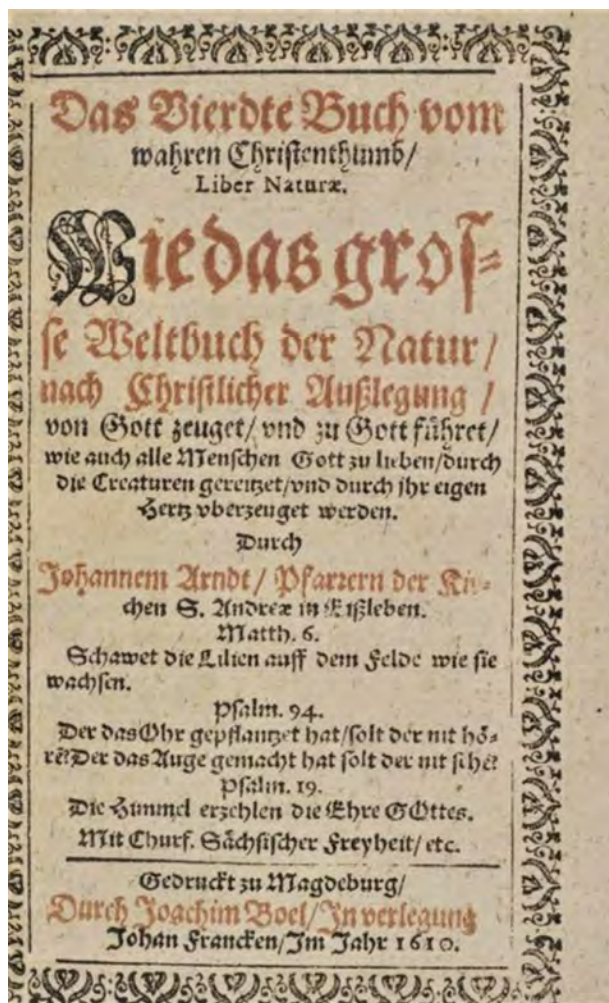 Das Vierdte Buch vom
wahren Christenthumb/
Liber Naturæ.
Wie das gros-
se Weltbuch der Natur/
nach Christlicher Außlegung /
von Gott zeuget/ vnd zu Gott führet/
wie auch alle Menschen Gott zu lieben/durch
die Creaturen gereitzet/vnd durch jhr eigen
Hertz vberzeuget werden.
Durch
Johannem Arndt/ Pfarrern der Kir-
chen S. Andreæ in Eißleben.
Matth. 6.
Schawet die Lilien auff dem Felde wie sie
wachsen.
Psalm. 94.
Der das Ohr gepflantzet hat/solt der nit hö-
rē? Der das Auge gemacht hat solt der nit sehē?
Psalm. 19.
Die Himmel erzehlen die Ehre GOttes.
Mit Churf. Sächsischer Freyheit/ etc.
Gedruckt zu Magdeburg/
Durch Joachim Boel/In verlegung
Johan Francken/Im Jahr 1610.